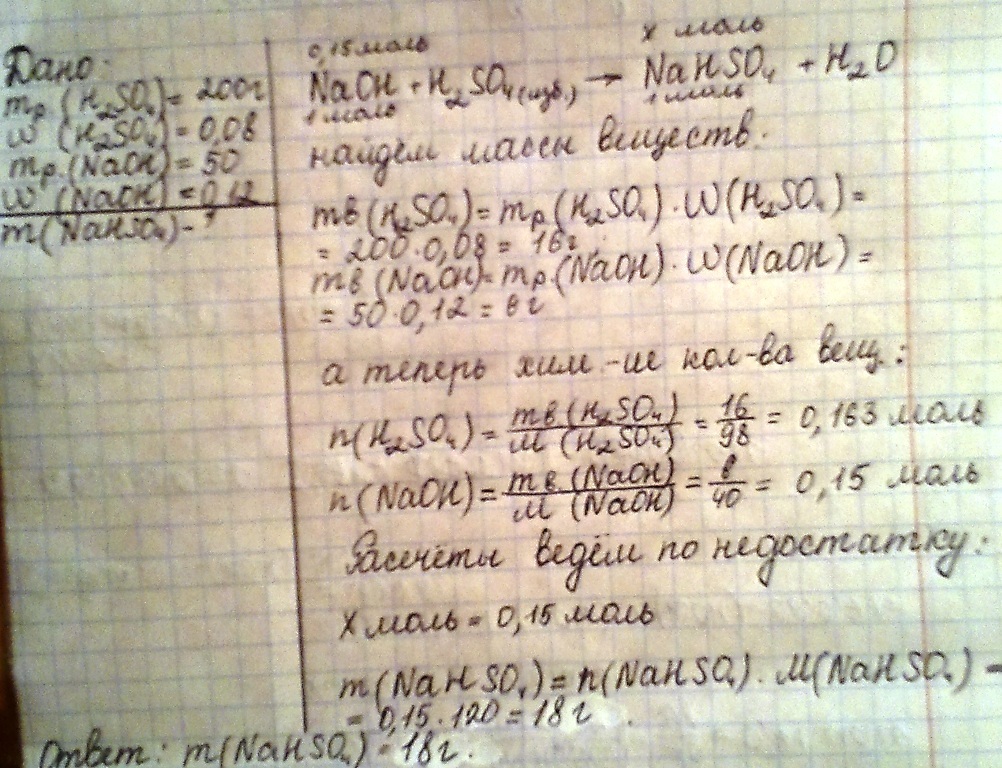 Дано:
mр.(H₂SO₄) = 200г
w (H₂SO₄) = 0,08
mр.(NaOH) = 50
w (NaOH) = 0,12
m(NaHSO₄) - ?
0,15 моль x моль
NaOH + H₂SO₄(изб.) → NaHSO₄ + H₂O
1 моль 1 моль
найдём массы веществ.
mв (H₂SO₄) = mр (H₂SO₄) · W(H₂SO₄) =
= 200 · 0,08 = 16г
mв (NaOH) = mр.(NaOH) · W(NaOH) =
= 50 · 0,12 = 6г
а теперь хим-ие кол-ва вещ.:
n(H₂SO₄) = mв (H₂SO₄) / M (H₂SO₄) = 16/98 = 0,163 моль
n(NaOH) = mв. (NaOH) / M (NaOH) = 6/40 = 0,15 моль
Рассчёты ведём по недостатку:
X моль = 0,15 моль
m(NaHSO₄) = n(NaHSO₄) · M(NaHSO₄) =
= 0,15 · 120 = 18 г.
Ответ: m(NaHSO₄) = 18г.